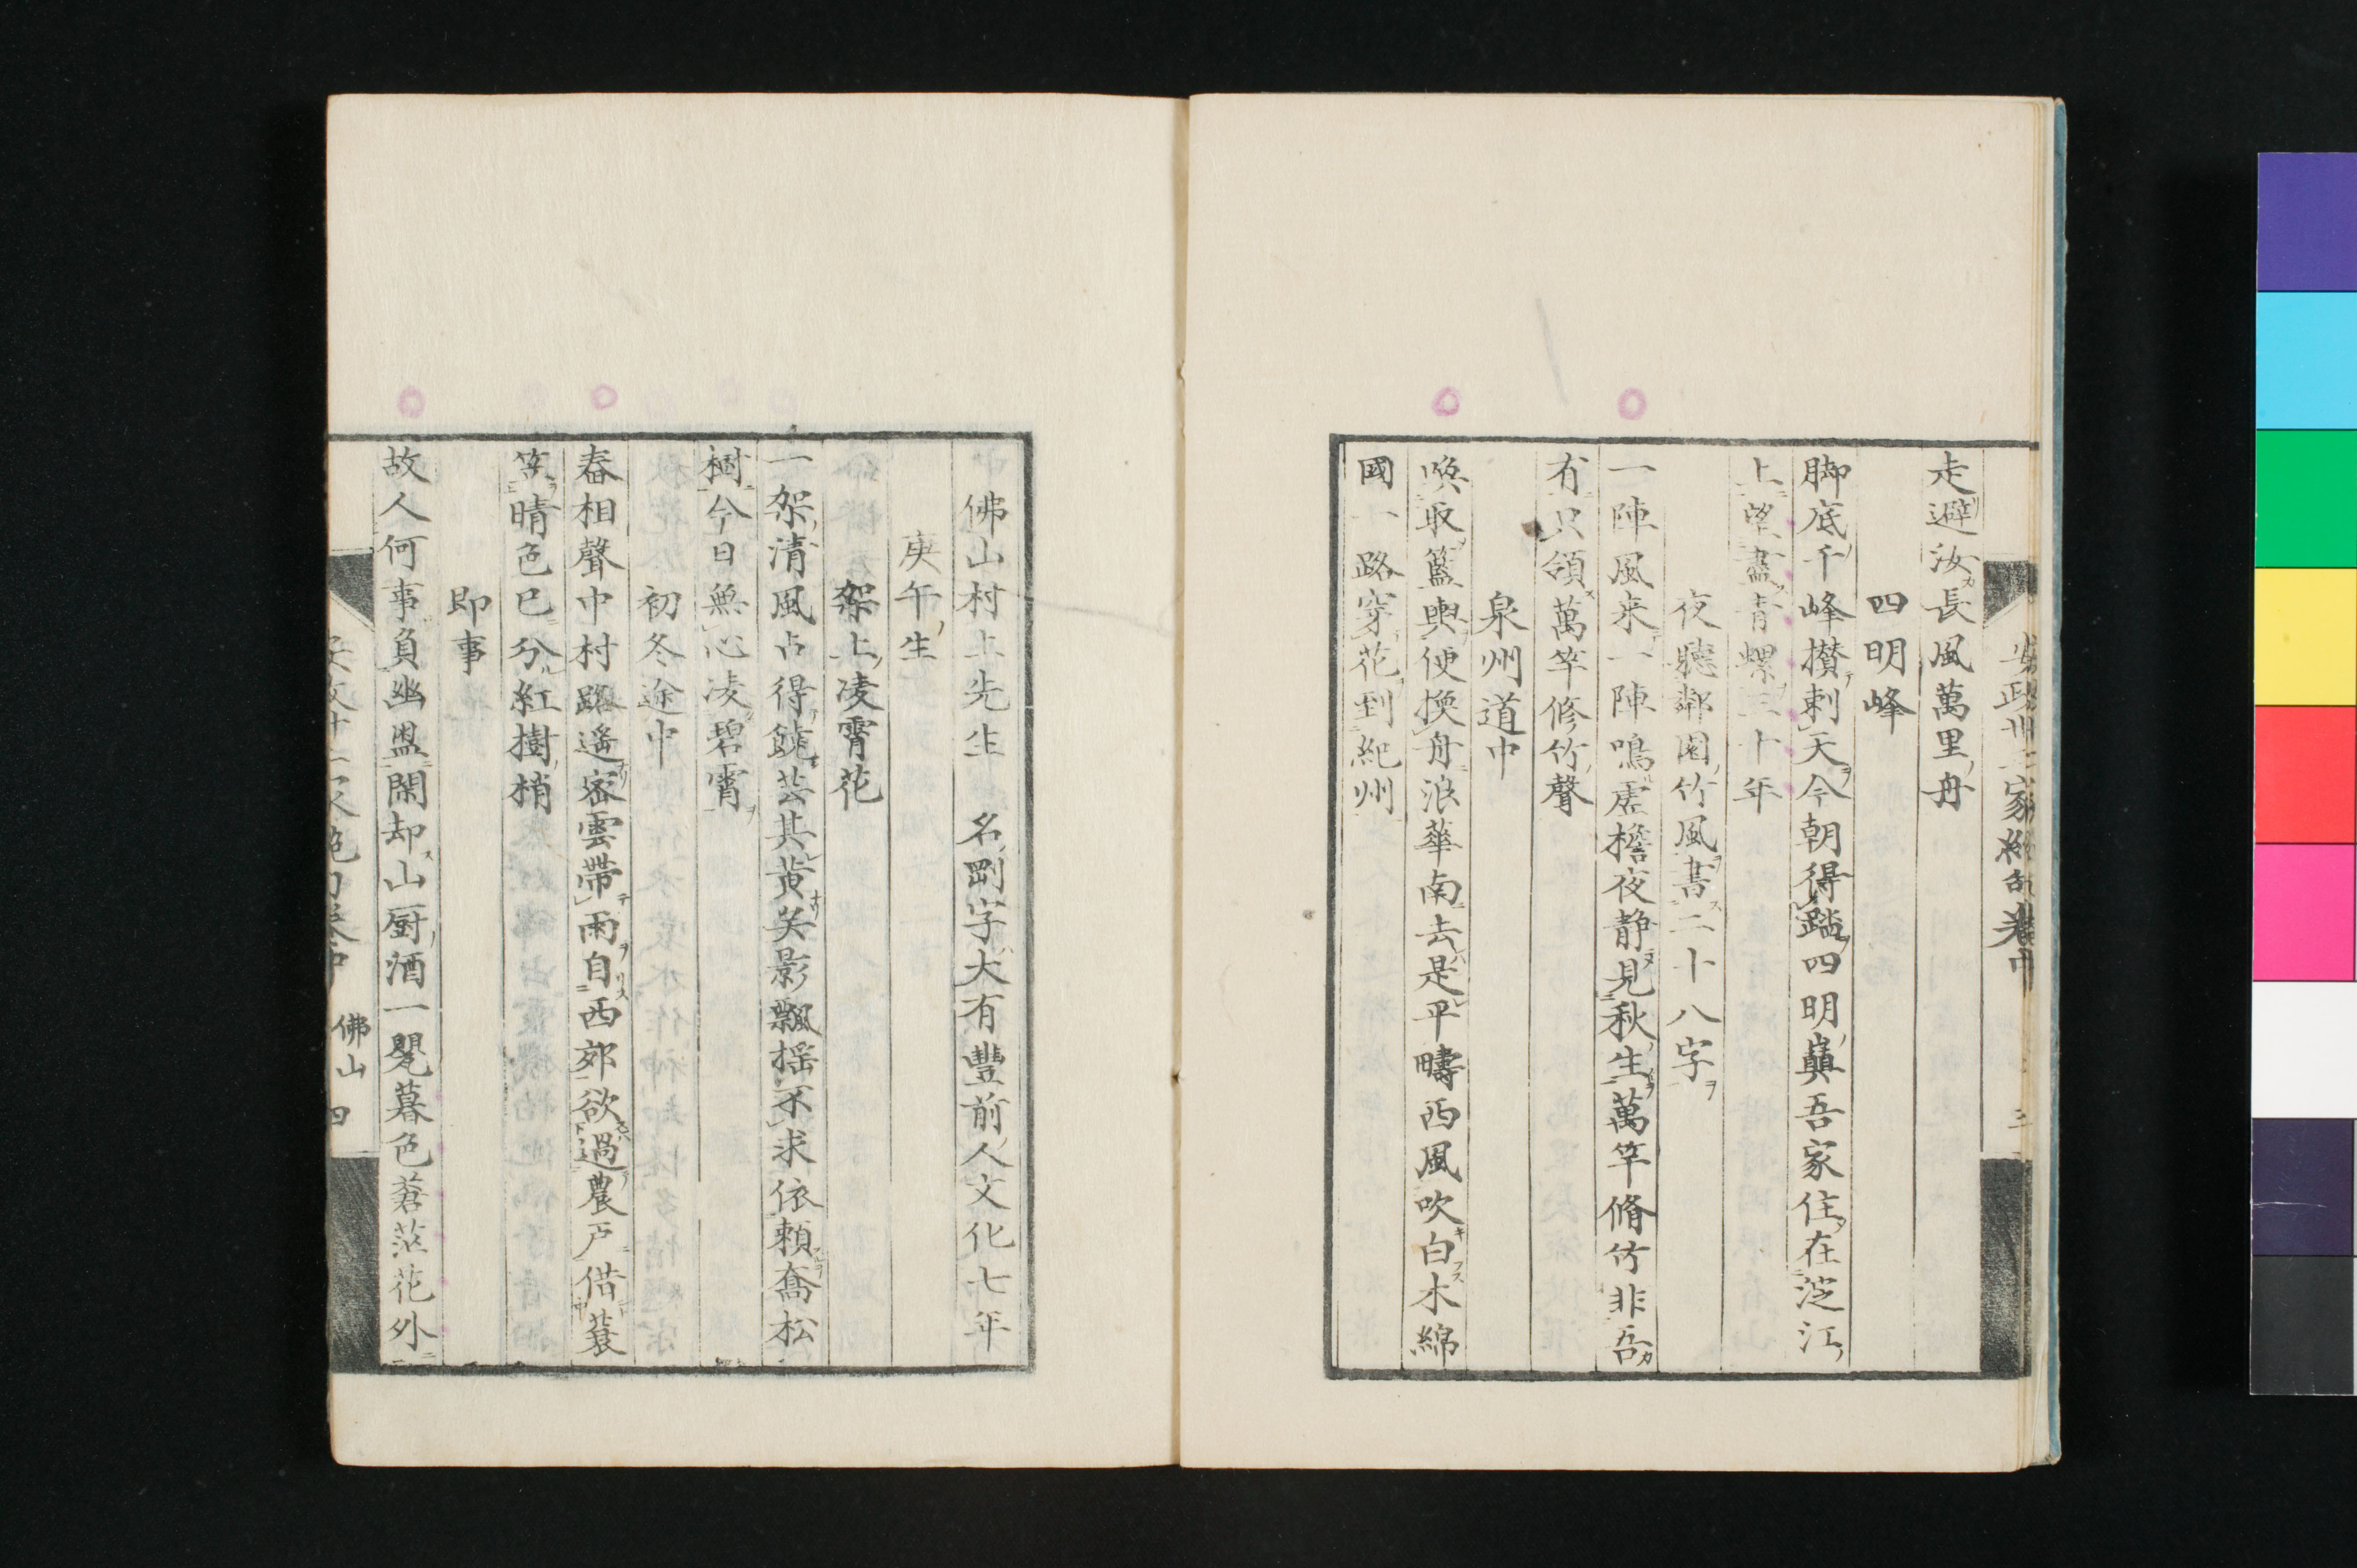 走避汝長風萬里舟
四明峰
脚底千峰攅刺天今朝得踏四明巓吾家住在淀江
上望盡青螺三十年
夜聽鄰園竹風書二十八字
一陣風来一陣鳴虚檐夜静見秋生萬竿脩竹非吾
有只領萬竿修竹聲
泉州道中
喚取籃輿便換舟浪華南去是平疇西風吹白木綿
國一路穿花到紀州
佛山村上先生 名剛字大有豐前人文化七年
庚午生
架上凌霄花
一架清風占得饒芸其黄矣影飄揺不求依頼喬松
樹今日無心凌碧霄
初冬途中
舂相聲中村路遙密雲帶雨自西郊欲過農戸借蓑
笠晴色已分紅樹梢
即事
故人何事負幽盟閑却山厨酒一甖暮色蒼茫花外
佛山 四